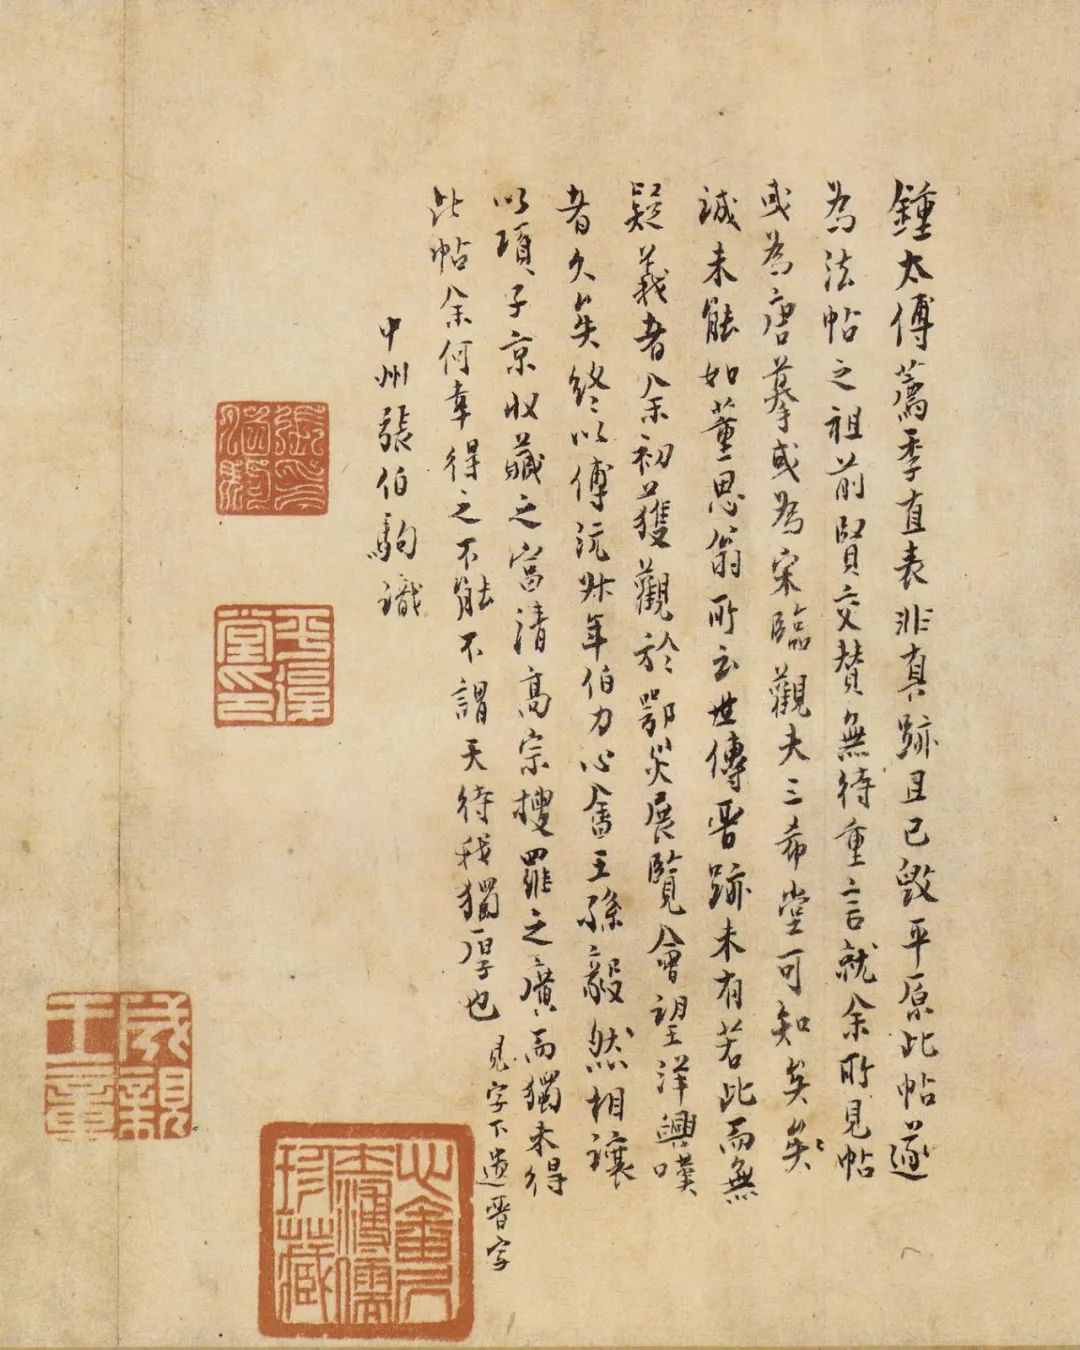 鍾太傅薦季直表非真跡且已毀平原此帖遂
為法帖之祖前賢交贊無待重言就余所見帖
或為唐摹或為宋臨觀夫三希堂可知矣矣
誠未能如董思翁所云世傳晉跡未有若此而無
疑義者余初獲觀於鄂災展覽會望洋興嘆
者久矣終以傅沅叔年伯力心畬王孫毅然相讓
以項子京收藏之富清高宗搜羅之廣而獨未得
此帖余何幸得之不能不謂天待我獨厚也
見字下遺晉字
中州張伯駒識
張印伯駒
平復堂印
成親王章
珍藏